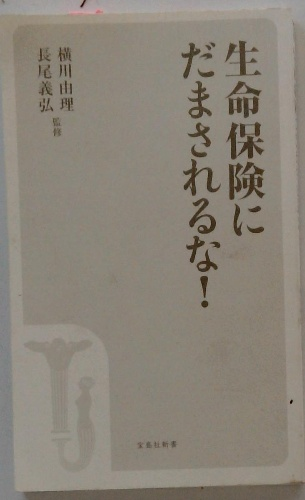 生命保険に
だまされるな!
横川由理
長尾義弘 監修
宝島社新書